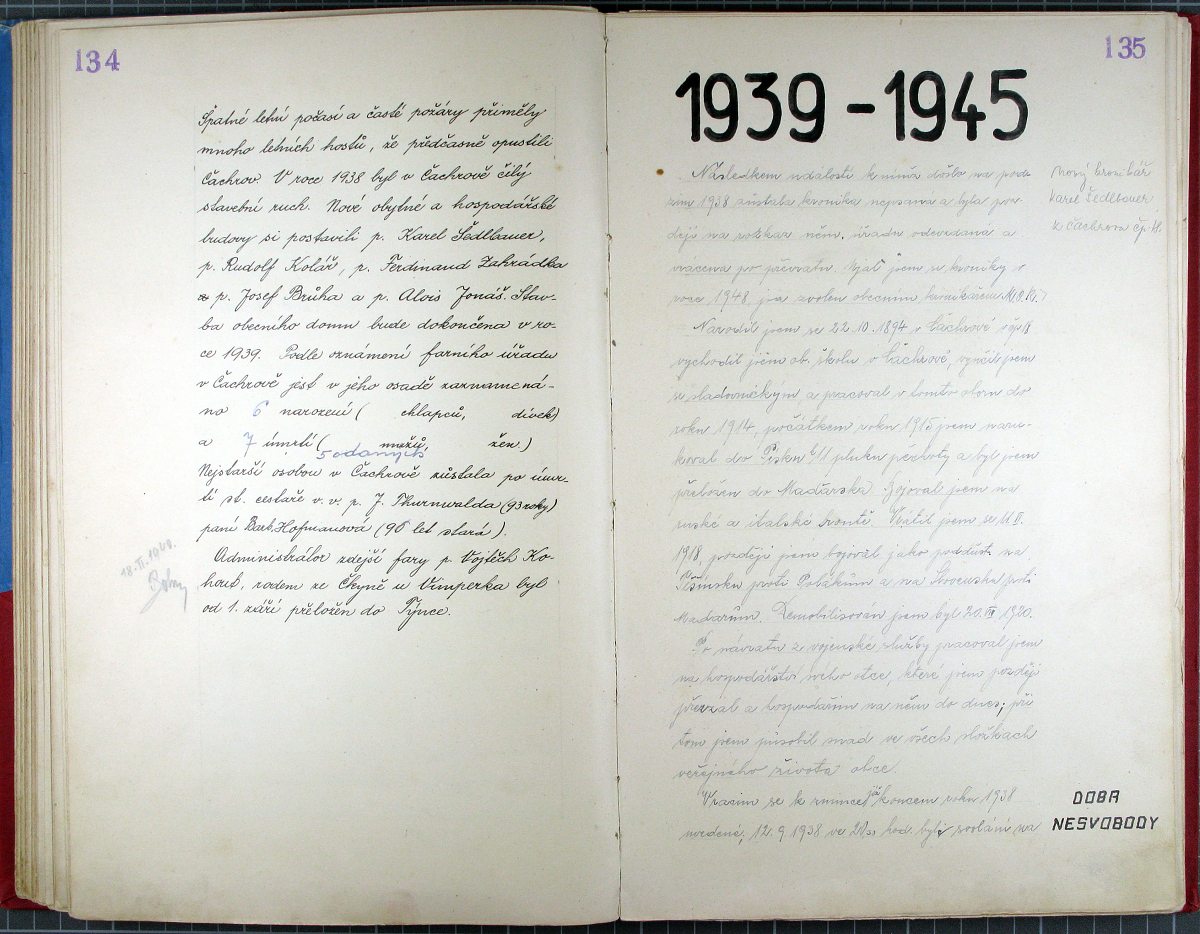 134
Špatné letní počasí a časté požáry přiměly
mnoho letních hostů, že předčasně opustili
Čachrov. V roce 1938 byl v Čachrově čilý
stavební ruch. Nové obytné a hospodářské
budovy si postavili p. Karel Sedlbauer,
p. Rudolf Kolář, p. Ferdinand Zahrádka
p. Josef Brůha a p. Alois Jonáš. Stav-
ba obecního domu bude dokončena v ro-
ce 1939. Podle oznámení farního úřadu
v Čachrově jest v jeho osadě zaznamená-
no 6 narození ( chlapců, dívek)
a 7 úmrtí ( mužů, žen)
5 oddaných
Nejstarší osobou v Čachrově zůstala po úmr-
tí st. cestáře v. v. p. J. Thurnwalda (93 roky)
paní Barb. Hofmanová (90 let stará).
Administrátor zdejší fary p. Vojtěch Ko-
hout, rodem ze Čkyně u Vimperka byl
od 1. září přeložen do Týnce.
18. II. 1940.
135
1939-1945
Následkem událostí k nimž došlo na pod-
zim 1938 zůstala kronika nepsána a byla poz-
ději na rozkaz něm. úřadu odevzdána a
vrácena po převratu. Ujal jsem se kroniky v
roce 1948 jsa zvolen obecním kronikářem M.O.K.)
nový kronikář
Karel Sedlbauer
z Čachrova čp. 18.
Narodil jsem se 22.10.1894 v Čachrově v čp 18
vychodil jsem ob. školu v Čachrově, vyučil jsem
se sladovnickým a pracoval v tomto oboru do
roku 1914, počátkem roku 1915 jsem naru-
koval do Písku k 11. pluku pěchoty a byl jsem
přeložen do Maďarska. Bojoval jsem na
ruské a italské frontě. Vrátil jsem se 11. II.
1918, později jsem bojoval jako poddůst. na
Těšínsku proti Polákům a na Slovensku proti
Maďarům. Demobilisován jsem byl 20. 1920.
Po návratu z vojenské služby pracoval jsem
na hospodářství svého otce, které jsem později
převzal a hospodařím na něm do dnes; při
tom jsem působil snad ve všech složkách
veřejného života obce.
Vracím se k zmínce již koncem roku 1938
uvedené, 12. 9. 1938 ve hod. byli svoláni na
DOBA
NESVOBODY